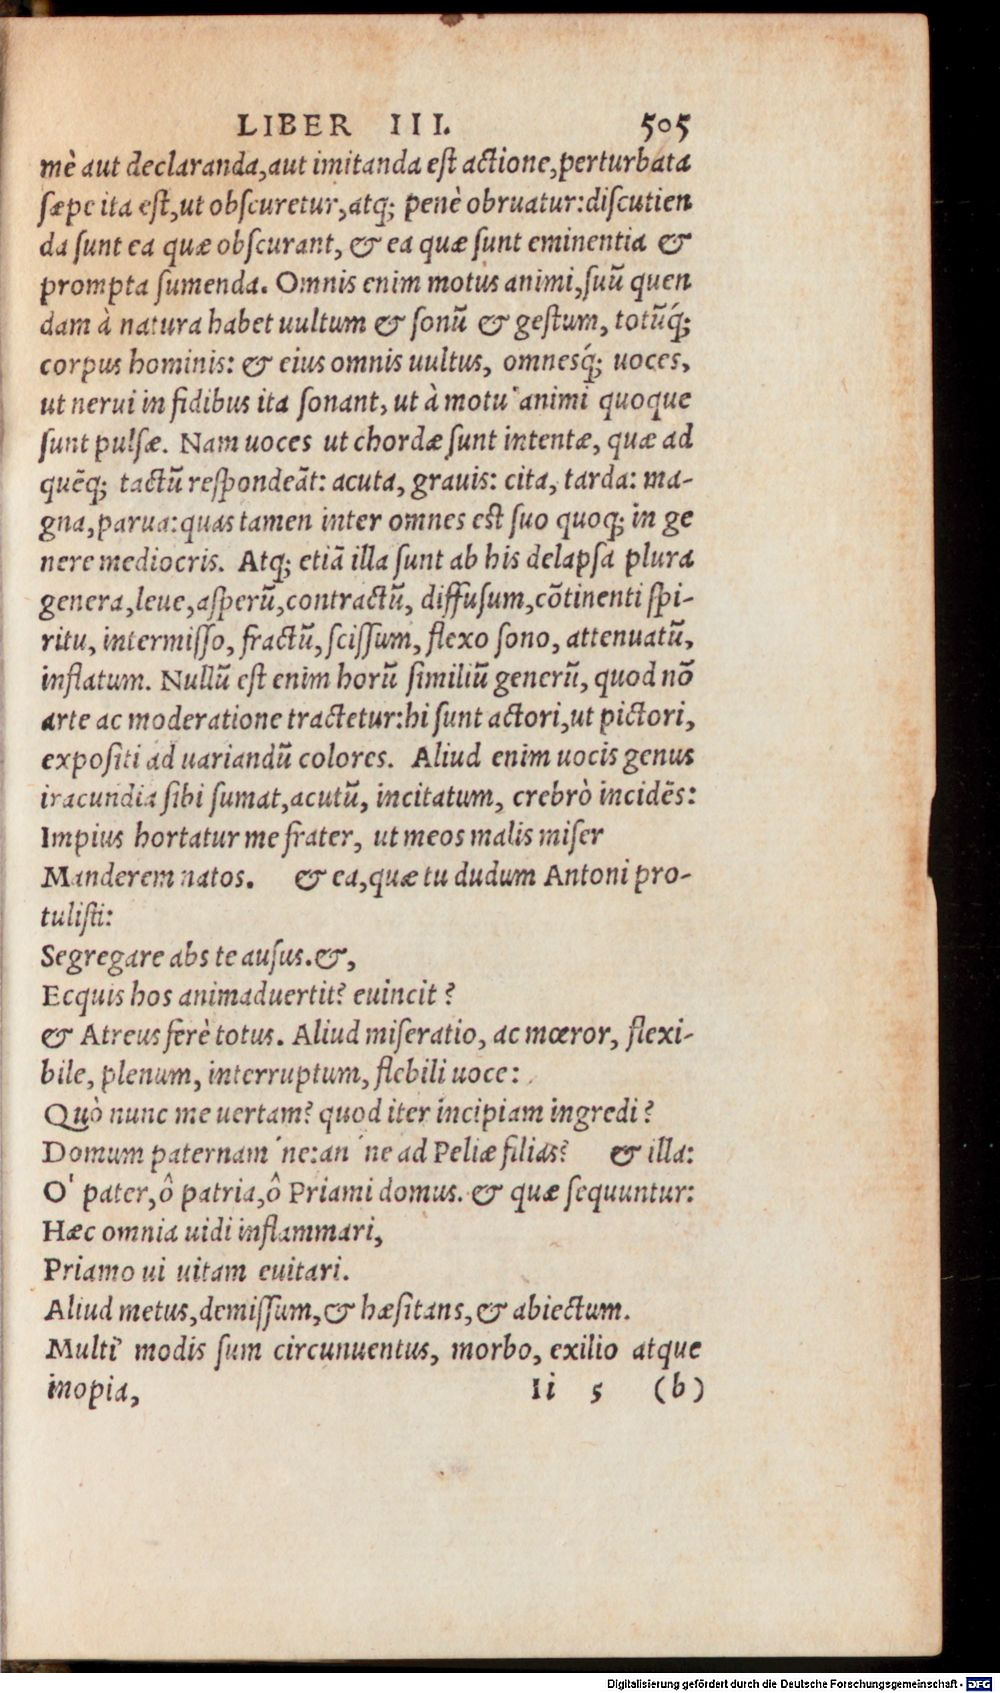 LIBER III. 505
mè aut declaranda,aut imitanda est actione,perturbata
sæpe ita est,ut obscuretur,atq; penè obruatur:discutien
da sunt ea quæ obscurant, & ea quæ sunt eminentia &
prompta sumenda. Omnis enim motus animi,suũ quen
dam à natura habet uultum & sonũ & gestum, totũq́;
corpus hominis: & eius omnis uultus, omnesq́; uoces,
ut nerui in fidibus ita sonant, ut à motu animi quoque
sunt pulsæ. Nam uoces ut chordæ sunt intentæ, quæ ad
quẽq; tactũ respondeãt: acuta, grauis: cita, tarda: ma-
gna,parua:quas tamen inter omnes est suo quoq; in ge
nere mediocris. Atq; etiã illa sunt ab his delapsa plura
genera,leue,asperũ,contractũ, diffusum,cõtinenti spi-
ritu, intermisso, fractũ, scissum, flexo sono, attenuatũ,
inflatum. Nullũ est enim horũ similiũ generũ, quod nõ
arte ac moderatione tractetur:hi sunt actori,ut pictori,
expositi ad uariandũ colores. Aliud enim uocis genus
iracundia sibi sumat,acutũ, incitatum, crebrò incidẽs:
Impius hortatur me frater, ut meos malis miser
Manderem natos. & ea,quæ tu dudum Antoni pro-
tulisti:
Segregare abs te ausus.&,
Ecquis hos animaduertit? euincit ?
& Atreus ferè totus. Aliud miseratio, ac mœror, flexi-
bile, plenum, interruptum, flebili uoce:
Quò nunc me uertam? quod iter incipiam ingredi?
Domum paternam ́ne:an ́ne ad Peliæ filias? & illa:
O' pater,ô patria,ô Priami domus. & quæ sequuntur:
Hæc omnia uidi inflammari,
Priamo ui uitam euitari.
Aliud metus,demissum,& hæsitans,& abiectum.
Multi' modis sum circunuentus, morbo, exilio atque
inopia, Ii 5 (b)
Digitalisierung gefördert durch die Deutsche Forschungsgemeinschaft - DFG